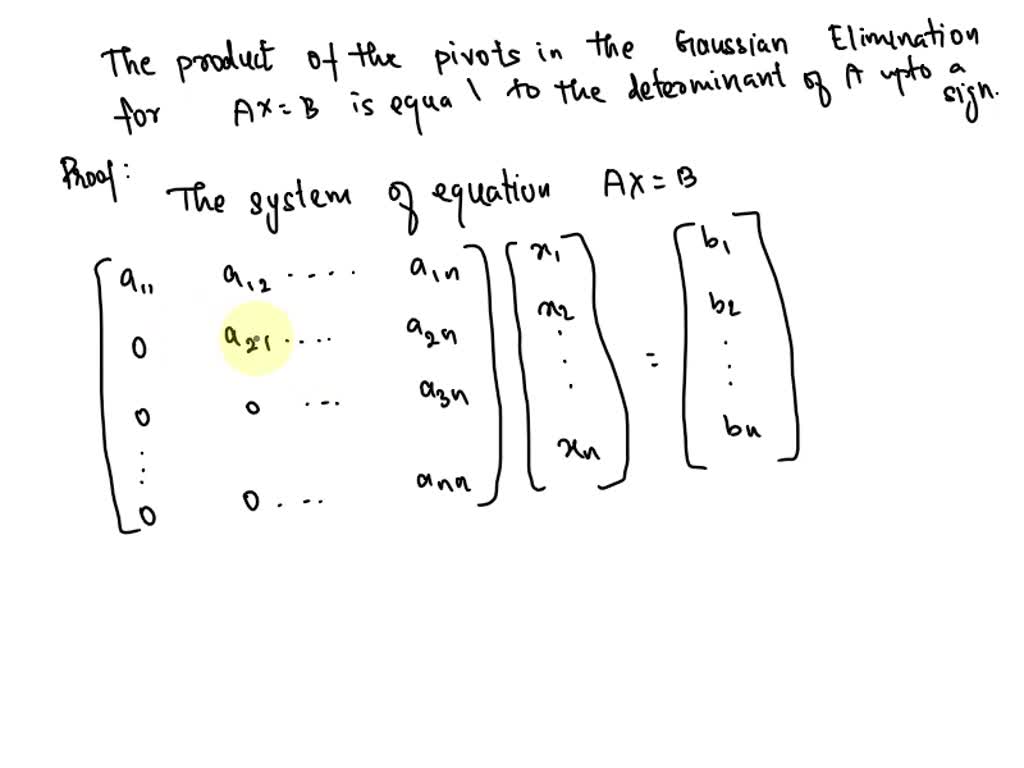 The product of the pivots in the Gaussian Elimination
for AX=B is equal to the determinant of A upto a sign.
Proof:
The system of equation AX=B
a11 a12 .... a1n x1 b1
0 a21 .... a2n x2 b2
0 0 ... a3n = 
0 0 ... ann xn bn